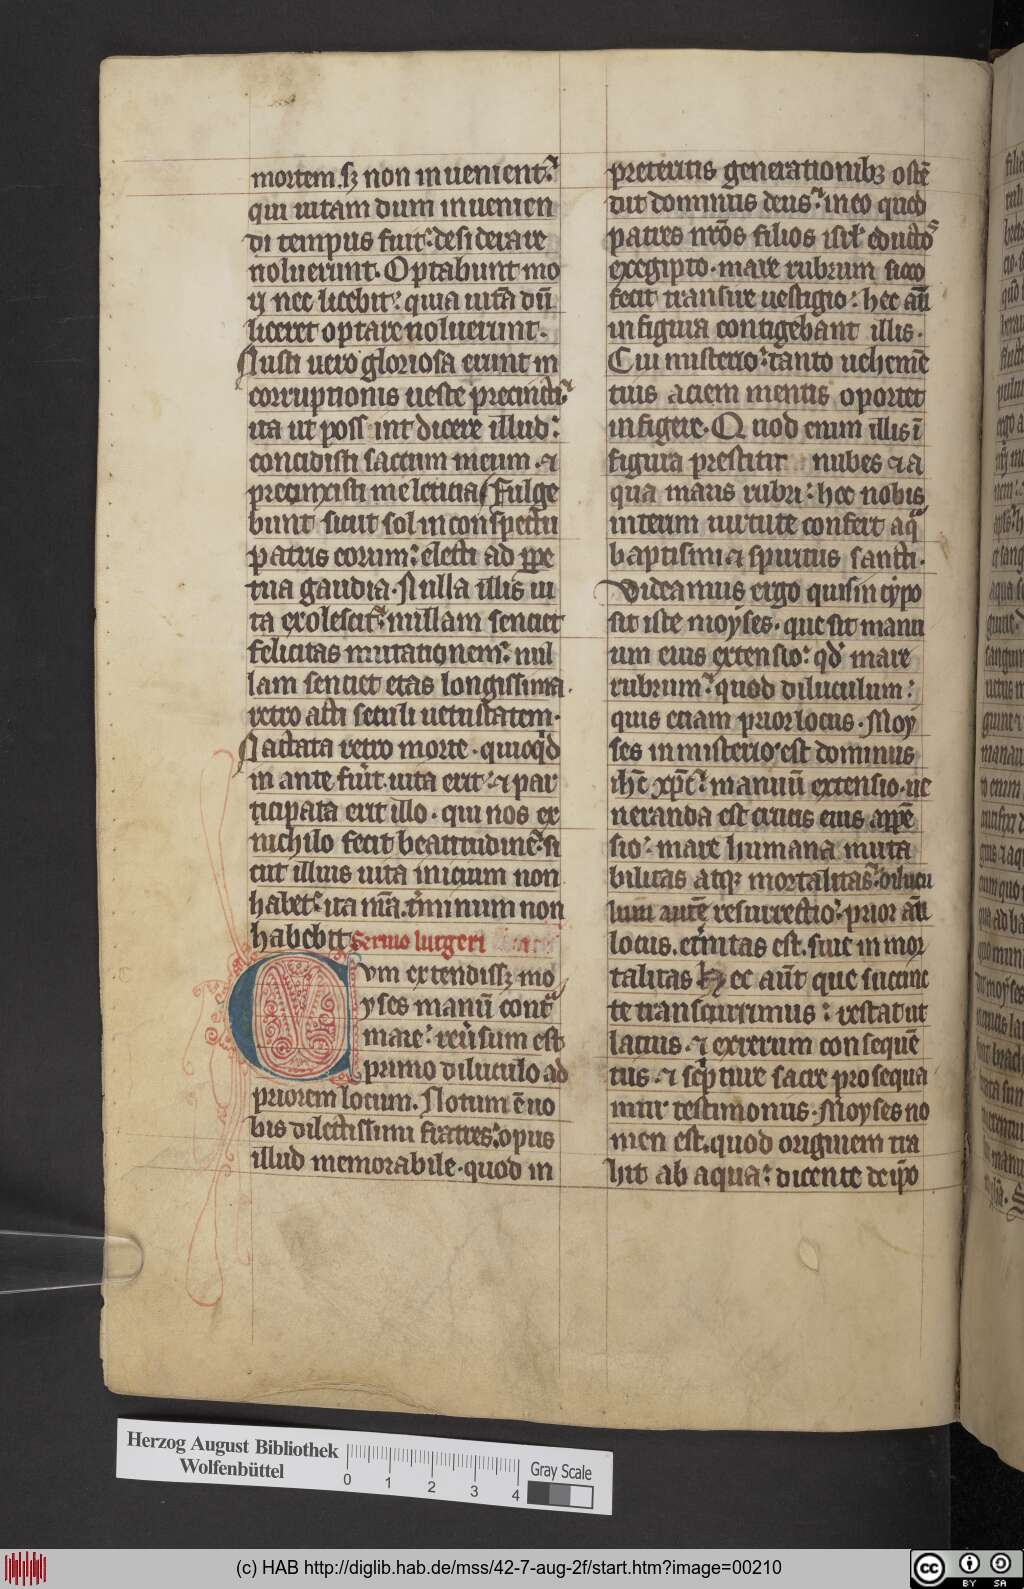 mortem. sꝫ non inuenient:
qui uitam dum inuenien
di tempus fuit: desiderare
noluerunt. Optabunt mo
ri nec licebit: quia uitā dū
liceret optare noluerunt.
Iusti uero gloriosa erunt in
corruptionis ueste precincti:
ita ut possint dicere illud:
concidisti saccum meum. et
precinxisti me leticia. Fulge
bunt sicut sol in conspectu
patris eorum: electi ad ꝑpe
tua gaudia. Nulla illis ui
ta exolescit: nullam sentiet
felicitas mutationem: nul
lam sentiet etas longissima.
retro acti seculi uetustatem.
Iactata retro morte. quicqͥd
in ante fuıt͛. uita erit: et par
ticipata erit illo. qui nos ex
nichilo fecit beatitudinē: si
cut illius uita inicium non
habet: ita nr̄a. t͛minum non
habebit. Sermo lutgeri
Cvm extendissꝫ mo
yses manū contᷓ
mare: reu͛sum est
primo diluculo ad
priorem locum. Notum ē uo
bis dilectissimi fratres: opus
illud memorabile. quod in
preteritis generationibꝫ ostē
dit dominus deus: in eo quod
patres nr̄os filios isrl̄ eductos
ex egipto. mare rubrum sicco
fecit transire uestigio: hec aūt
in figura contigebant illis.
Cui misterio: tanto uehemē
tius aciem mentis oportet
infigere. Quod enim illis ī
figura prestitit nubes et a
qua maris rubri: hec nobis
interim uirtute confert aqᷓ
baptismi. et spiritus sancti.
Videamus ergo quis in typo
sit iste moyses. que sit manu
um eius extensio: qd̄ mare
rubrum: quod diluculum:
quis etiam prior locus. Moy
ses in misterio est dominus
ihc̄ xp̄c: manuū extensio. ue
neranda est crucis eius appē
sio: mare humana muta
bilitas atqꝫ mortalitas: dilucu
lum autē resurrectio: prior aūt
locus. et͛nitas est. siue inmor
talitas. Hec aūt que succinc
te transcurrimus: restat ut
latius. et exertum consequē
tus. et sc̄pture sacre prosequa
mur testimonus. Moyses no
men est. quod originem tra
hit ab aqua: dicente de ip̄o
Herzog August Bibliothek
Wolfenbüttel
0 1 2 3 4
Gray Scale
(c) HAB http://diglib.hab.de/mss/42-7-aug-2f/start.htm?image=00210
cc BY SA